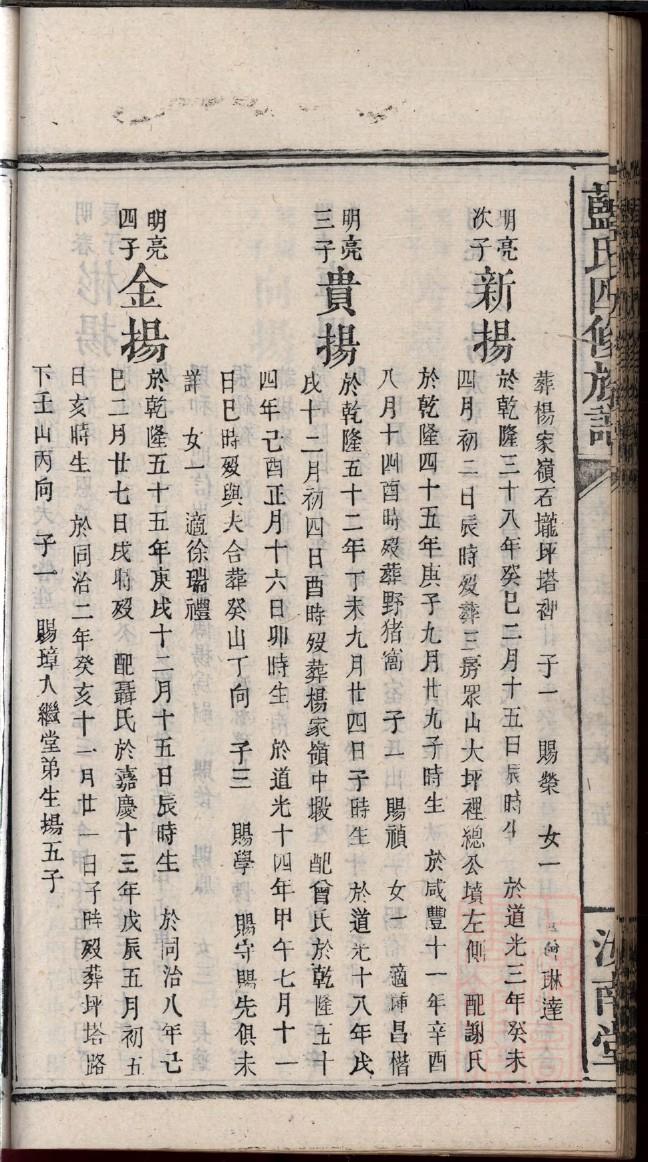 藍氏四修族譜
汝南堂
葬楊家嶺石壠坪塔裡 子一 賜榮 女一 適曾琳達
明亮次子新揚
於乾隆三十八年癸巳二月十五日辰時生 於道光三年癸未
四月初二日辰時歿葬三房眾山大坪裡總公墳左側 配謝氏
於乾隆四十五年庚子九月廿九子時生 於咸豐十一年辛酉
八月十四酉時歿葬野猪窩 子一 賜禎 女一 適鍾昌楷
明亮三子貴揚
於乾隆五十二年丁未九月廿四日子時生 於道光十八年戊
戌十二月初四日酉時歿葬楊家嶺中塅 配曾氏於乾隆五十
四年己酉正月十六日卯時生 於道光十四年甲午七月十一
日巳時歿與夫合葬癸山丁向 子三 賜學 賜守賜先俱未
詳 女一 適徐瑞禮
明亮四子金揚
於乾隆五十五年庚戌十二月十五日辰時生 於同治八年己
巳二月廿七日戌時歿 配聶氏於嘉慶十三年戊辰五月初五
日亥時生 於同治二年癸亥十一月廿一日子時歿葬坪塔路
下壬山丙向 子一 賜璋入繼堂弟生揚五子